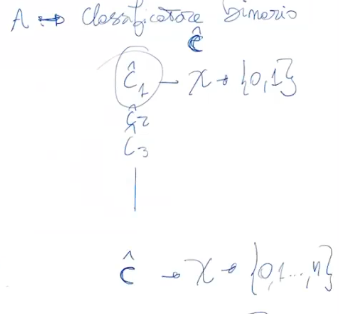 A ↔ Classificatore binario
Ĉ
Ĉ₁ → X → {0,1}
Ĉ₂
Ĉ₃
Ĉ → X → {0,1...,n}